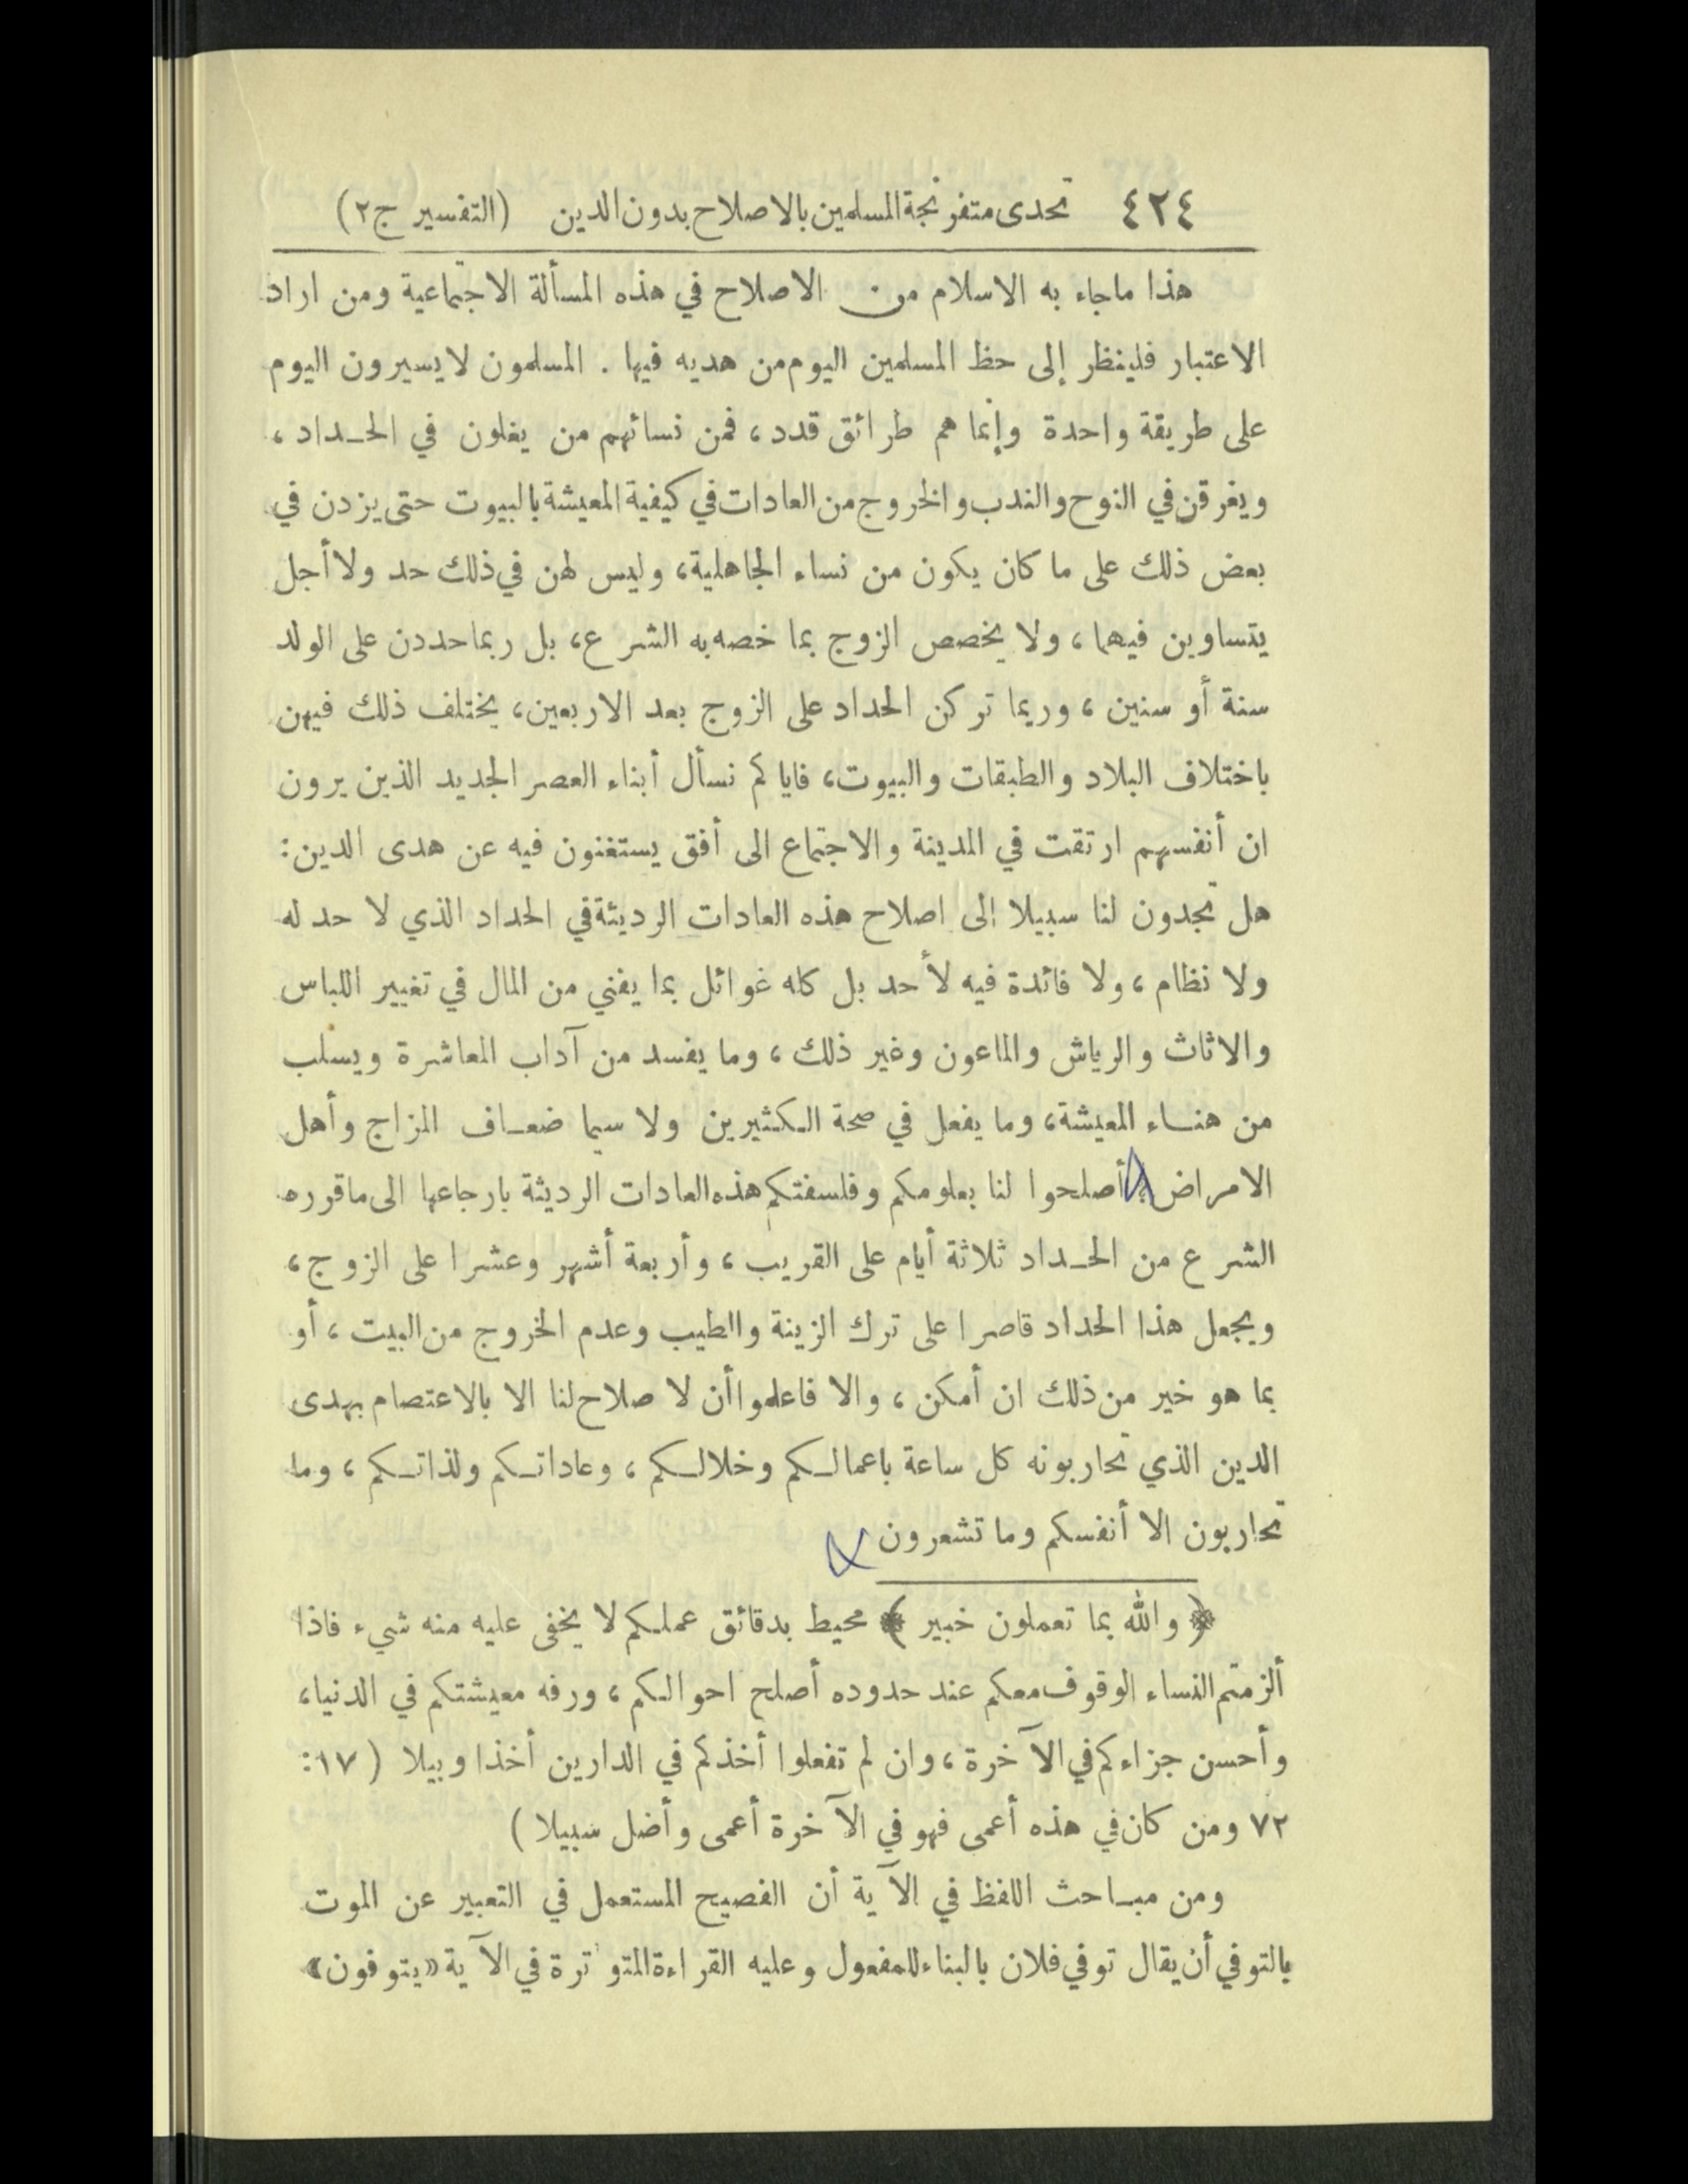 ٤٢٤ تحدى متفرنجة المسلمين بالاصلاح بدون الدين (التفسير ج٢)
هذا ما جاء به الاسلام من الاصلاح في هذه المسألة الاجتماعية ومن اراد
الاعتبار فلينظر إلى حظ المسلمين اليوم من هديه فيها . المسلمون لا يسيرون اليوم
على طريقة واحدة وإنما هم طرائق قدد، فمن نسائهم من يغلون في الحـداد ،
ويغرقن في النوح والندب والخروج من العادات في كيفية المعيشة بالبيوت حتى يزدن في
بعض ذلك على ما كان يكون من نساء الجاهلية، وليس لهن في ذلك حد ولا أجل
يتساوين فيهما ، ولا يخصص الزوج بما خصه به الشرع، بل ربما حددن على الولد
سنة أو سنين ، وربما تركن الحداد على الزوج بعد الاربعين، يختلف ذلك فيهن
باختلاف البلاد والطبقات والبيوت، فاياكم نسأل أبناء العصر الجديد الذين يرون
ان أنفسهم ارتقت في المدينة والاجتماع الى أفق يستغنون فيه عن هدى الدين:
هل تجدون لنا سبيلا إلى اصلاح هذه العادات الرديئة في الحداد الذي لا حد له
ولا نظام ، ولا فائدة فيه لأحد بل كله غوائل بما يفني من المال في تغيير اللباس
والاثاث والرياش والماعون وغير ذلك ، وما يفسد من آداب المعاشرة ويسلب
من هنـاء المعيشة، وما يفعل في صحة الـكثيرين ولا سيما ضعـاف المزاج وأهل
الامراض؟ أصلحوا لنا بعلومكم وفلسفتكم هذه العادات الرديئة بارجاعها الى ما قرره
الشرع من الحـداد ثلاثة أيام على القريب ، وأربعة أشهر وعشرا على الزوج ،
ويجعل هذا الحداد قاصرا على ترك الزينة والطيب وعدم الخروج من البيت ، أو
بما هو خير من ذلك ان أمكن ، والا فاعلموا أن لا صلاح لنا الا بالاعتصام بهدى
الدين الذي تحاربونه كل ساعة باعمالـكم وخلالـكم ، وعاداتـكم ولذاتـكم ، وما
تحاربون الا أنفسكم وما تشعرون
﴿ والله بما تعملون خبير ﴾ محيط بدقائق عملـكم لا يخفى عليه منه شيء فاذا
ألزمتم النساء الوقوف معكم عند حدوده أصلح احوالـكم ، ورفه معيشتكم في الدنيا،
وأحسن جزاءكم في الآخرة ، وان لم تفعلوا أخذكم في الدارين أخذا وبيلا ( ١٧ :
٧٢ ومن كان في هذه أعمى فهو في الآخرة أعمى وأضل سبيلا )
ومن مبـاحث اللفظ في الآية أن الفصيح المستعمل في التعبير عن الموت
بالتوفي أن يقال توفي فلان بالبناء للمفعول وعليه القراءة المتواترة في الآية «يتوفون»